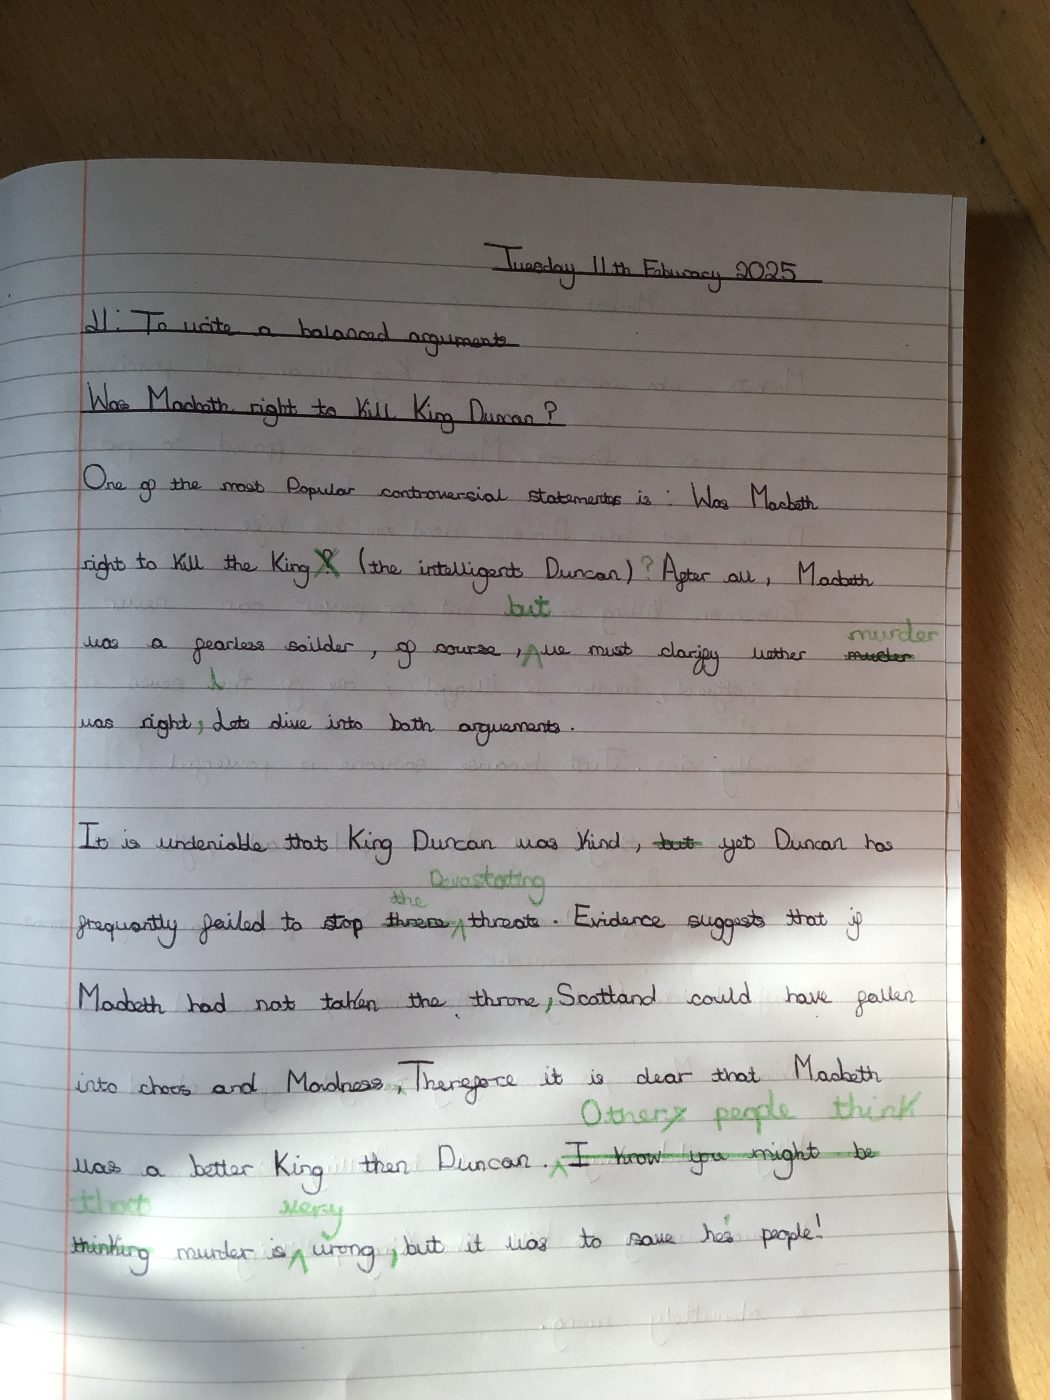 Tuesday 11th Feburary 2025
LI: To write a balanced arguments
Was Macbeth right to kill King Duncan?
One of the most Popular controversial statements is: Was Macbeth
right to kill the King (the intelligents Duncan)? After all, Macbeth
but
murder
was a fearless sailder, of course, we must clarify wether murder
was right, Lets dive into both arguements.
It is undeniable that King Duncan was kind, but yet Duncan has
the Devastating
frequantly failed to stop there threats. Evidence suggests that if
Macbeth had not taken the throne, Scottland could have fallen
into chaos and Madness, Therefore it is clear that Macbeth
Others people think
was a better King then Duncan. I know you might be
that very
thinking murder is wrong, but it was to save his people!